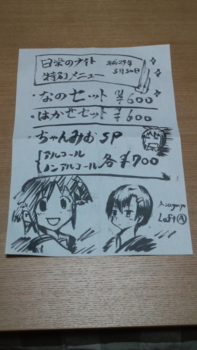 日常のナイト
特別メニュー
・なのセット ¥600
・はかせセット ¥600
・ちゃんみおSP
アルコール
ノンアルコール 各¥700
Loft A